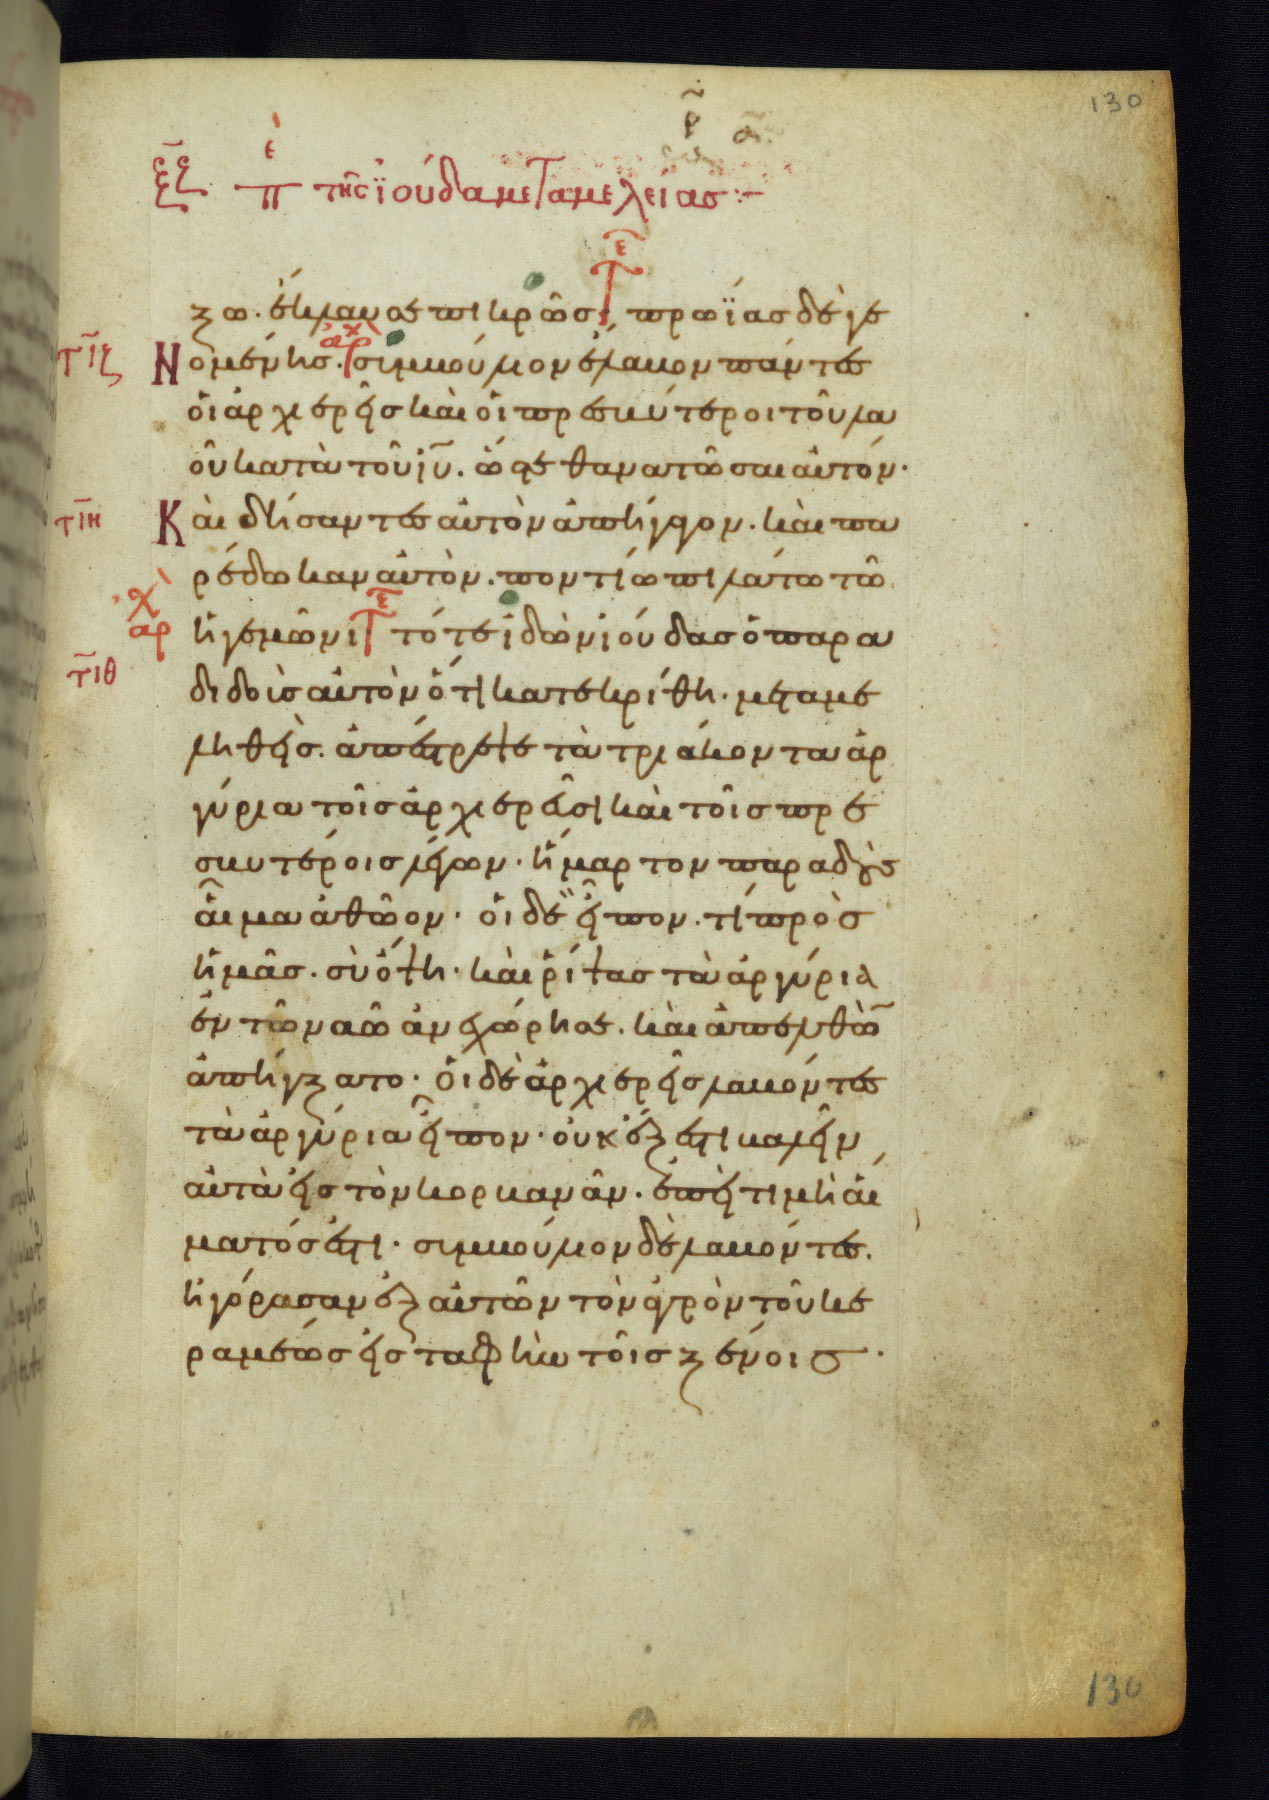 130
ρ̃ α
ξ̅ζ̅ πε τῆς ἰούδα μεταμελείας :–
ξω. ἔκλαυσε πικρῶς τε̅ πρωΐας δὲ γε
τ̅ιζ Νομένης. ἀρχ συμβούλιον ἔλαβον πάντες
οἱ ἀρχιερεῖς καὶ οἱ πρεσβύτεροι τοῦ λα
οῦ κατὰ τοῦ ιῦ. ὥστε θανατῶσαι αὐτόν.
τ̅ιη Καὶ δήσαντες αὐτὸν ἀπήγαγον. καὶ πα
ρέδωκαν αὐτὸν. ποντίω πιλάτω τῶ
ἀρχ ἡγεμῶνι τε̅ τότε ἰδὼν ἰούδας ὁ παρα
τ̅ιθ διδοὺς αὐτὸν ὅτι κατεκρίθη. μεταμε
ληθεὶς. ἀπέστρεψε τὰ τριάκοντα ἀρ
γύρια τοῖς ἀρχιερεῦσι καὶ τοῖς πρε
σβυτέροις λέγων. ἥμαρτον παραδοὺς
αἷμα ἀθῶον. οἱ δὲ εἶπον. τί πρὸς
ἡμᾶς. σὺ ὄψη. καὶ ῥίψας τὰ ἀργύρια
ἐν τῶ ναῶ ἀνεχώρησε. καὶ ἀπελθὼν
ἀπήγξατο. οἱ δὲ ἀρχιερεῖς λαβόντες
τὰ ἀργύρια εἶπον. οὐκ ἔξεστι βαλεῖν
αὐτὰ εἰς τὸν κορβανᾶν. ἐπεὶ τιμὴ αἵ
ματός ἐστι. συμβούλιον δὲ λαβόντες.
ἠγόρασαν ἐξ αὐτῶν τὸν ἀγρὸν τοῦ κε
ραμέως εἰς ταφὴν τοῖς ξένοις.
130